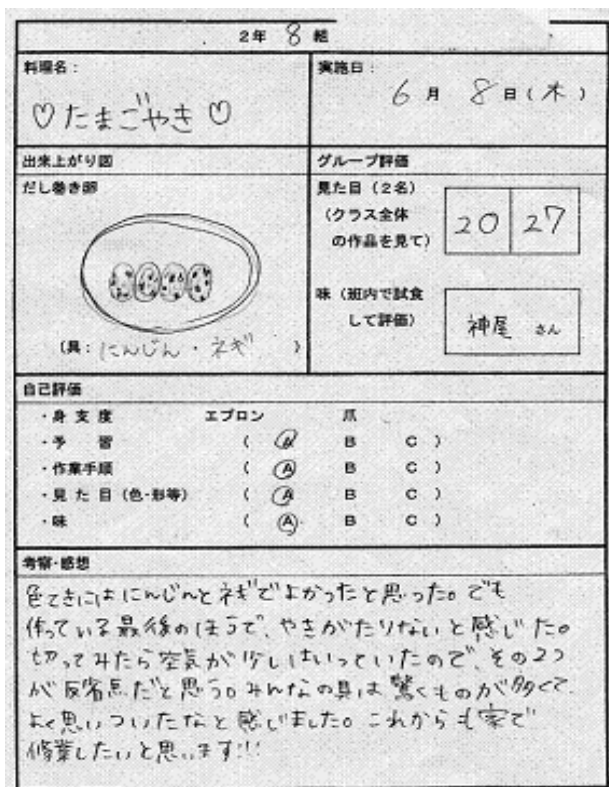 2年 8 組
料理名:
♡たまごやき♡
実施日:
6月 8日(木)
出来上がり図
だし巻き卵
(具:にんじん・ネギ )
グループ評価
見た目(2名)
(クラス全体
の作品を見て)
20 27
味(班内で試食
して評価)
神尾 さん
自己評価
・身支度 エプロン 爪
・予習 ( A B C )
・作業手順 ( A B C )
・見た目(色・形等) ( A B C )
・味 ( A B C )
考察・感想
色てきにはにんじんとネギでよかったと思った。でも
作っている最後のほうで、やきがたりないと感じた。
切ってみたら空気が少しはいっていたので、その2つ
が反省点だと思う。みんなの具は驚くものが多くて
よく思いついたなと感じました。これからも家で
修業したいと思います!!